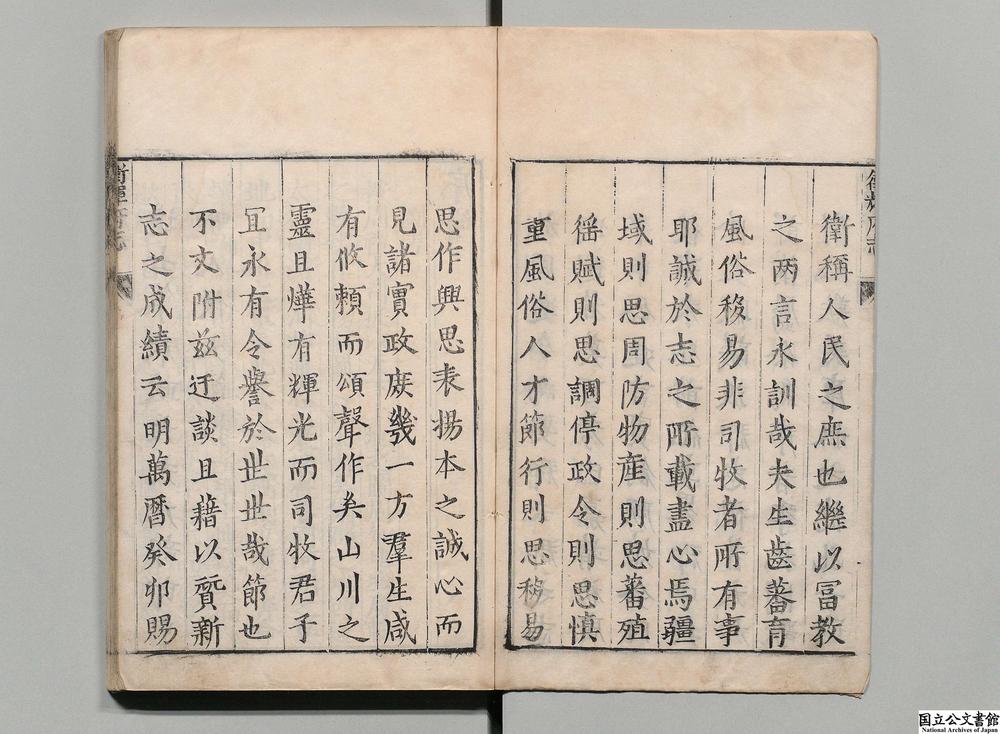 衛稱人民之庶也繼以冨教
之两言永訓哉夫生齒蕃育
風俗移易非司牧者所有事
耶誠於志之所載盡心焉疆
域則思周防物產則思蕃殖
徭賦則思調停政令則思慎
重風俗人才節行則思移易
思作興思表揚本之誠心而
見諸實政庻幾一方羣生咸
有攸頼而頌聲作矣山川之
靈且燁有輝光而司牧君子
冝永有令譽於世世哉節也
不文附兹迂談且藉以質新
志之成績云明萬曆癸卯賜
衛輝府志
衛輝府志
国立公文書館
National Archives of Japan